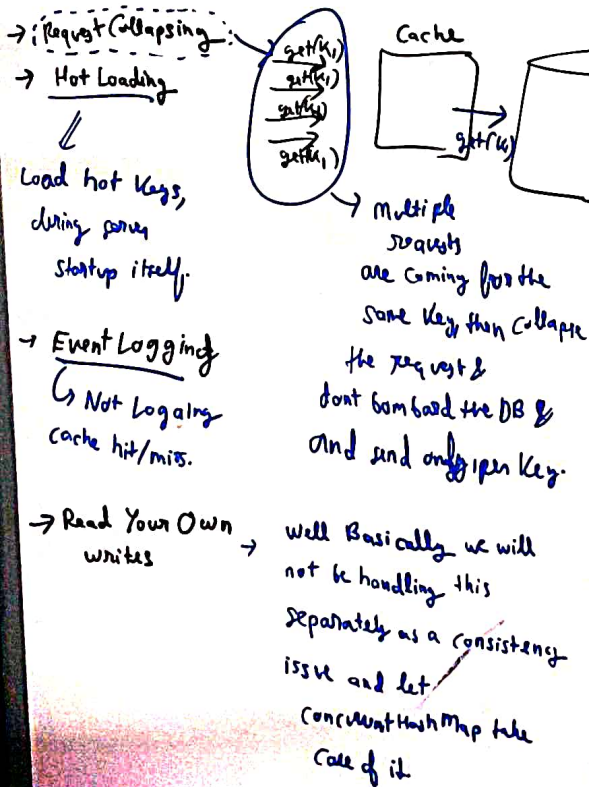 → Request Collapsing
→ Hot Loading
Load hot Keys,
during server
startup itself.
→ Event Logging
↳ Not Logging
cache hit/miss.
→ Read Your Own
writes
get(K1)
get(K1)
get(K1)
get(K1)
Cache
get(K1)
→ Multiple
requests
are coming for the
same Key, then Collapse
the request &
dont bombard the DB &
and send only 1 per Key.
→ Well Basically we will
not be handling this
separately as a consistency
issue and let
ConcurrentHashMap take
Care of it